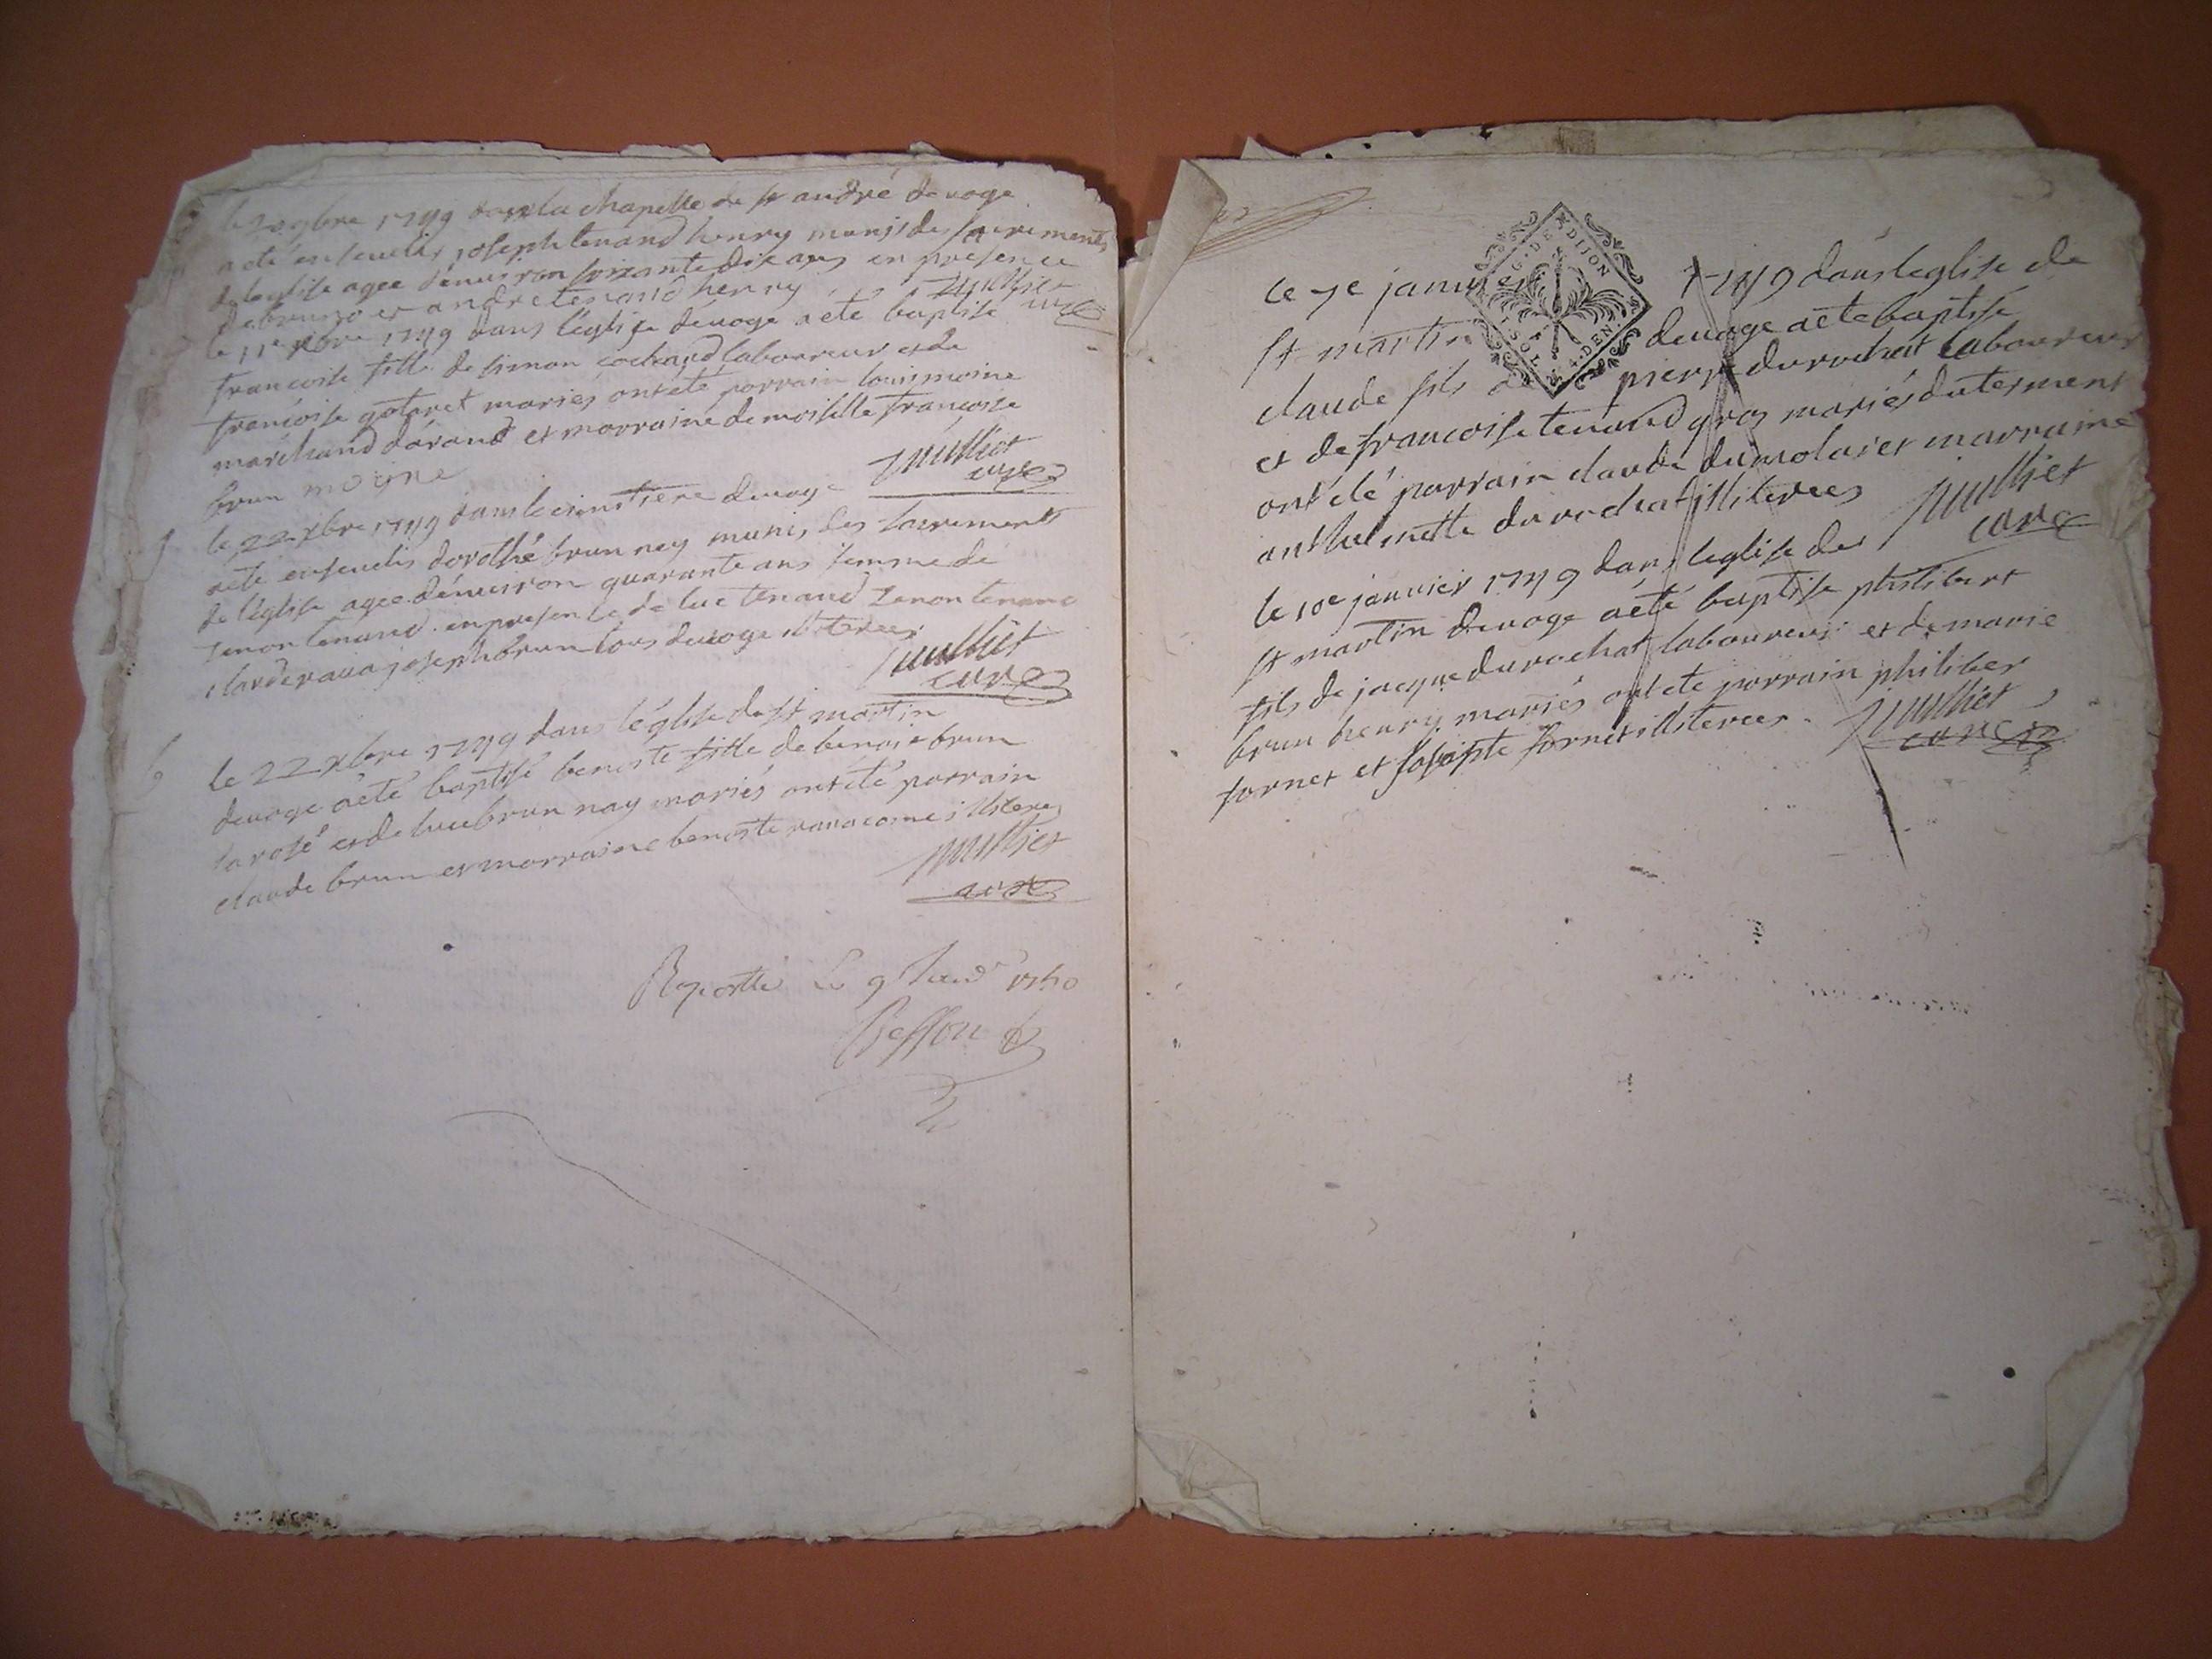 9bre 1749 dans la chapelle de st andré de uoge
a eté enseuelis joseph tenand henry munis des sacrements
de leglise agee denuiron soixante dix ans en presence
de bruno et andre tenand henry Juilliet curé
le 11e xbre 1749 dans l'eglise deuoge a eté baptise
francoise fille de simon cochand laboureur et de
francoise gotaret mariés ont eté parrain louis moine
marchand et marraine demoiselle francoise
brun moyne Juilliet
curé
le 22 xbre 1749 dans le cimetiere deuoge
a eté enseuelis dorothé brun nay munis des sacrements
de l'eglise agee denuiron quarante ans femme de
zenon tenand en presence de luc tenand zenon tenand
claude raua joseph brun tous deuoge illiterees
Juilliet
curé
le 22 xbre 1749 dans l'eglise de st martin
deuoge a eté baptisé benoiste fille de benoist brun
larose et de luce brun nay mariés ont eté parrain
claude brun et marraine benoiste illiteres
Juilliet
curé
Raporté Le 9 Janvr 1750
Besson
ce 7e januier 1749 dans leglise de
st martin deuage a eté baptisé
claude fils de pierre durochat laboureur
et de francoise tenand gros mariés du terment
ont eté parrain claude dumolar et marraine
anthelmette du rochat illiterees Juilliet
curé
le 10e januier 1749 dans leglise de
st martin deuoge a eté baptise philibert
fils de jacque durochat laboureur et de marie
brun henry mariés ont eté parrain philiber
fornet et fornet illiterees Juilliet
curé
G. DE DIJON
SOLS 4. DEN.